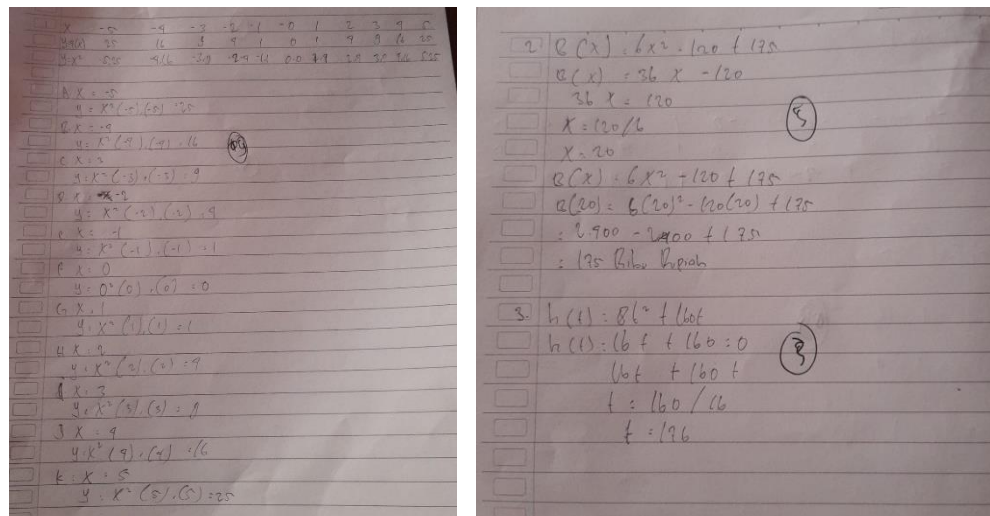 x -5 -4 -3 -2 -1 -0 1 2 3 4 5
25 16 9 4 1 0 1 4 9 16 25
y=x²
A x = -5
y = x² (-5).(-5) = 25
x = -4
y = x² (-4).(-4) = 16
C x = 3
y = x² (-3).(-3) = 9
x = -2
y = x² (-2).(-2) = 4
e x = -1
y = x² (-1).(-1) = 1
F x = 0
y = 0² (0).(0) = 0
G x . 1
y = x² (1).(1) = 1
H x = 2
y = x² (2).(2) = 4
x = 3
y = x² (3).(3) = 9
J x = 4
y = x² (4).(4) = 16
K = x = 5
y = x² (5).(5) = 25
2. B(x) = 6x² - 120 + 175
B(x) = 36 x - 120
36 x = 120
x = 120/6
x = 20
B(x) = 6x² - 120 + 175
B(20) = 6(20)² - 120(20) + 175
= 2.400 - 2400 + 175
= 175 Ribu Rupiah
5
3. h(t) = 8t² + 160t
h(t) = 16 t + 160 = 0
16t + 160 t
t = 160 / 16
t = 176
3